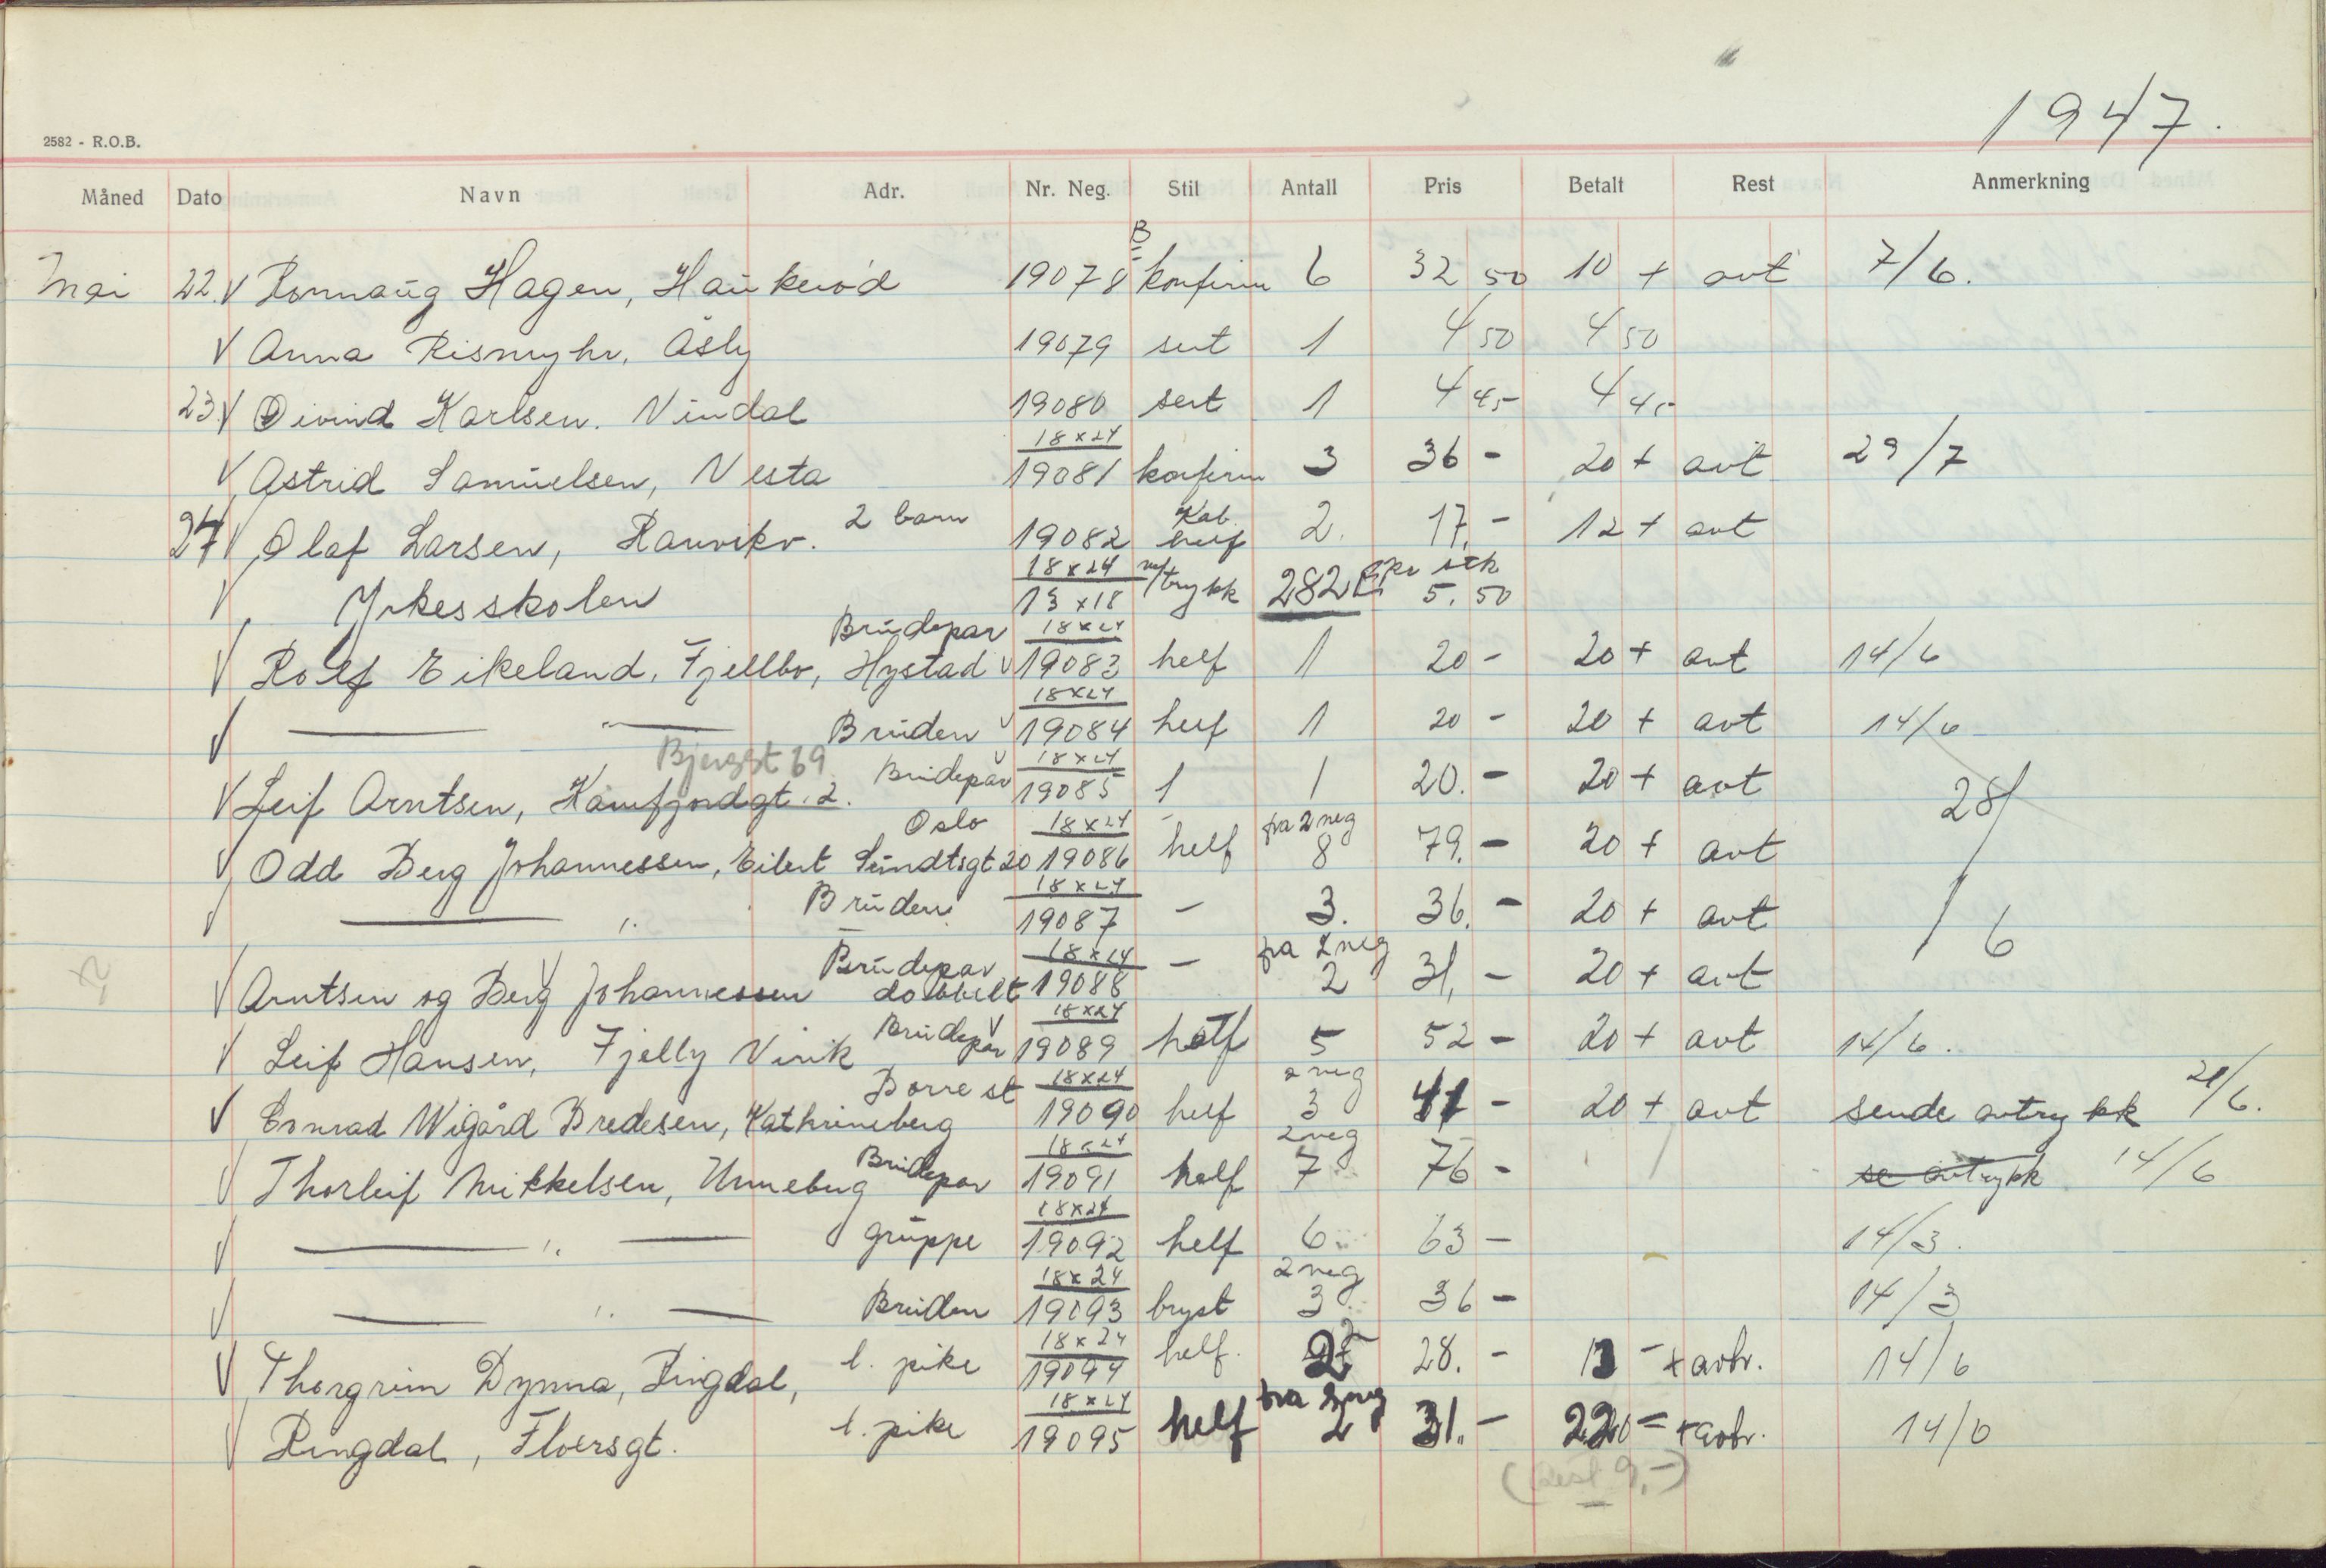 1947.
2582 - R.O.B.
Måned Dato Navn Adr. Nr. Neg. Stil Antall Pris Betalt Rest Anmerkning
B
Mai 22. V Ronnaug Hagen, Haukerød 19078 konfirm 6 32 50 10 + avt 7/6.
V Anna Rismyhr, Åsly 19079 sert 1 4 50 4 50
23. V Øivind Karlsen. Vindal 19080 sert 1 4 45 4 45
18x24
V Astrid Samuelsen, Nesta 19081 konfirm 3 36 - 20 + avt 29/7
2 barn Kab.
24 V Olaf Larsen, Ranvikv. 19082 helf 2. 17,- 12 + avt
18x24 pr stk
V Yrkesskolen 13x18 trykk 282 5.50
Brudepar 18x24
V Rolf Eikeland, Fjellbo, Hystad V 19083 helf 1 20 - 20 + avt 14/6
18x24
V — " — Bruden V 19084 helf 1 20 - 20 + avt 14/6
Bjergst 69 Brudepar V 18x24
V Leif Arntsen, Kamfjordgt. 2. 19085 1 1 20.- 20 + avt
Oslo 18x24 fra 2 neg 28/
V Odd Berg Johannessen, Eilert Sundtsgt 20 19086 helf 8 79.- 20 + avt
18x24
V — " Bruden 19087 - 3. 36.- 20 + avt
/ 6
Brudepar 18x24 fra 2 neg
V Arntsen og Berg Johannessen dobbelt 19088 - 2 31,- 20 + avt
Brudepar V 18x24
V Leif Hansen, Fjelly Virik 19089 helf 5 52 - 20 + avt 14/6.
Borre st 18x24 2 neg 21/6.
V Conrad Wigård Bredesen, Kathrineberg 19090 helf 3 41 - 20 + avt sende avtrykk
Brudepar 18x24 2 neg
V Thorleif Mikkelsen, Unneberg 19091 helf 7 76 - se avtrykk 14/6
18x24
V — " — gruppe 19092 helf 6 63 - 14/3.
18x24 2 neg
V — " — Bruden 19093 bryst 3 36 - 14/3
18x24
V Thorgrim Dynna, Ringdal, l. pike 19094 helf. 2 28. - 13 - + avbr. 14/6
18x24 fra 2 neg
V Ringdal, Floersgt. l. pike 19095 helf 2 31.- 22 = + avbr. 14/6
(Rest 9,-)